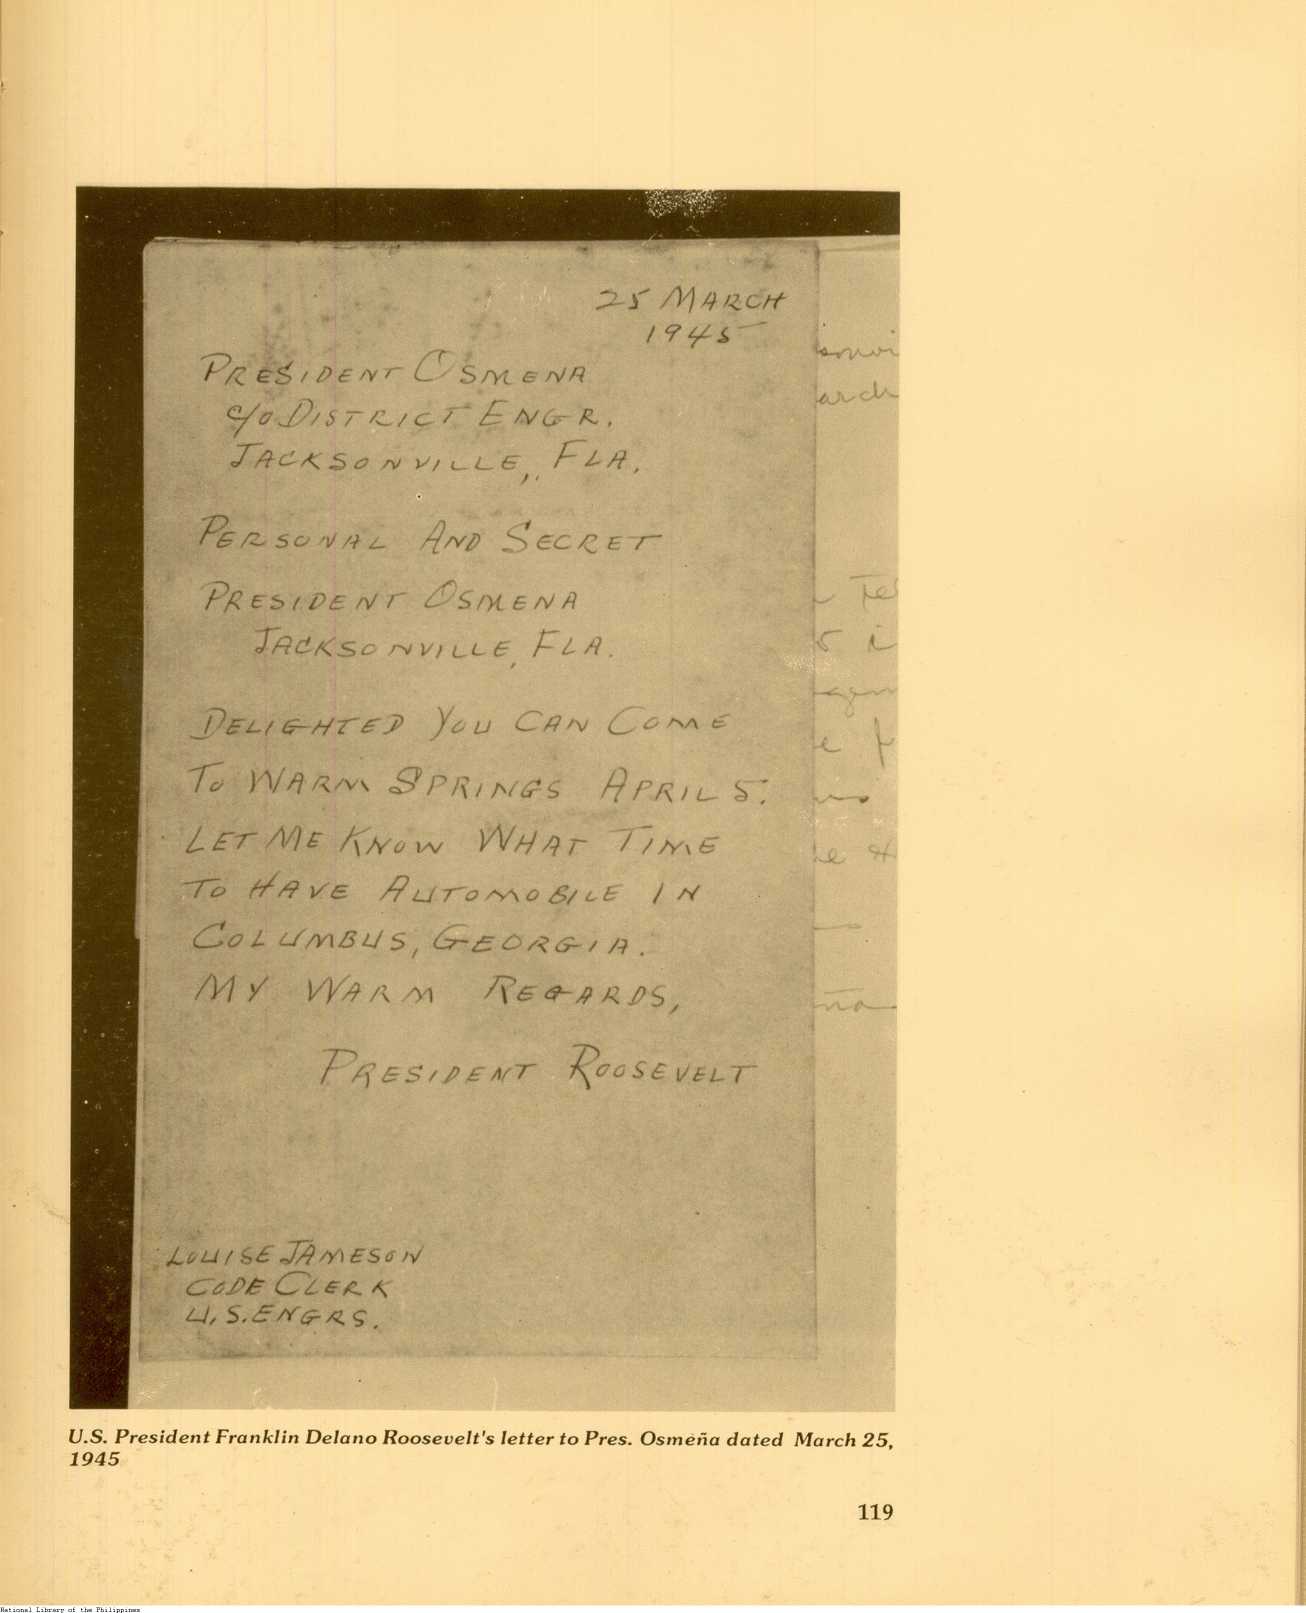 25 MARCH
1945
PRESIDENT OSMENA
c/o DISTRICT ENGR.
JACKSONVILLE, FLA.
PERSONAL AND SECRET
PRESIDENT OSMENA
JACKSONVILLE, FLA.
DELIGHTED YOU CAN COME
TO WARM SPRINGS APRIL 5.
LET ME KNOW WHAT TIME
TO HAVE AUTOMOBILE IN
COLUMBUS, GEORGIA.
MY WARM REGARDS,
PRESIDENT ROOSEVELT
LOUISE JAMESON
CODE CLERK
U.S. ENGRS.
U.S. President Franklin Delano Roosevelt's letter to Pres. Osmeña dated March 25,
1945
119
National Library of the Philippines